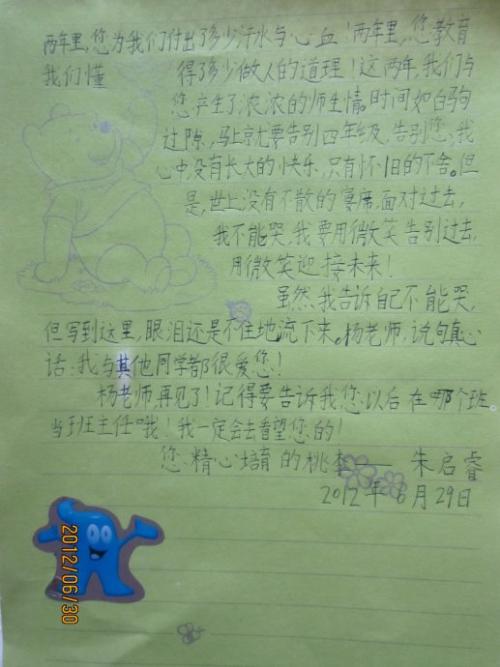 两年里,您为我们付出了多少汗水与心血!两年里,您教育
我们懂得了多少做人的道理!这两年,我们与
您产生了浓浓的师生情。时间如白驹
过隙,马上就要告别四年级,告别您,我
心中,没有长大的快乐,只有怀旧的不舍。但
是,世上没有不散的宴席,面对过去,
我不能哭,我要用微笑告别过去,
用微笑迎接未来!
虽然,我告诉自己不能哭,
但写到这里,眼泪还是不住地流下来。杨老师,说句真心
话:我与其他同学都很爱您!
杨老师,再见了!记得要告诉我您以后在哪个班。
当班主任哦!我一定会去看望您的!
您精心培育的桃李——朱启睿
2012年6月29日
2012/06/30